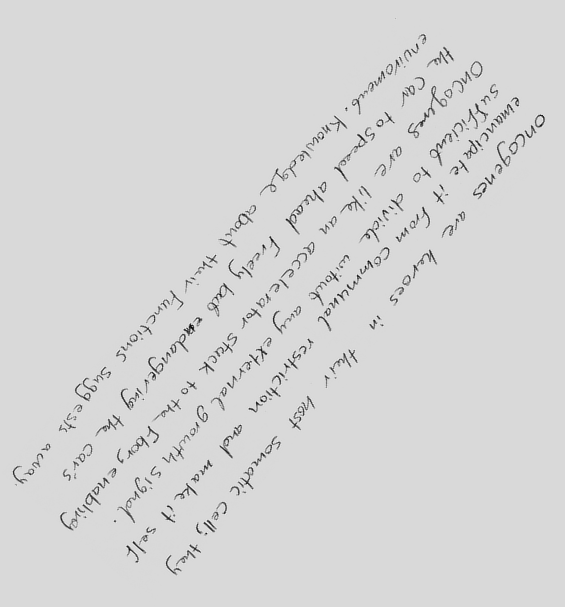 oncogenes are heroes in their host somatic cell; they
emancipate it from communal restriction and make it self
sufficient to divide witout any external growth signal.
Oncogenes are like an accelerator stuck to the floor, enabling
the car to speed ahead freely but endangering the car's
enviroment. Knowledge about their functions suggests away.